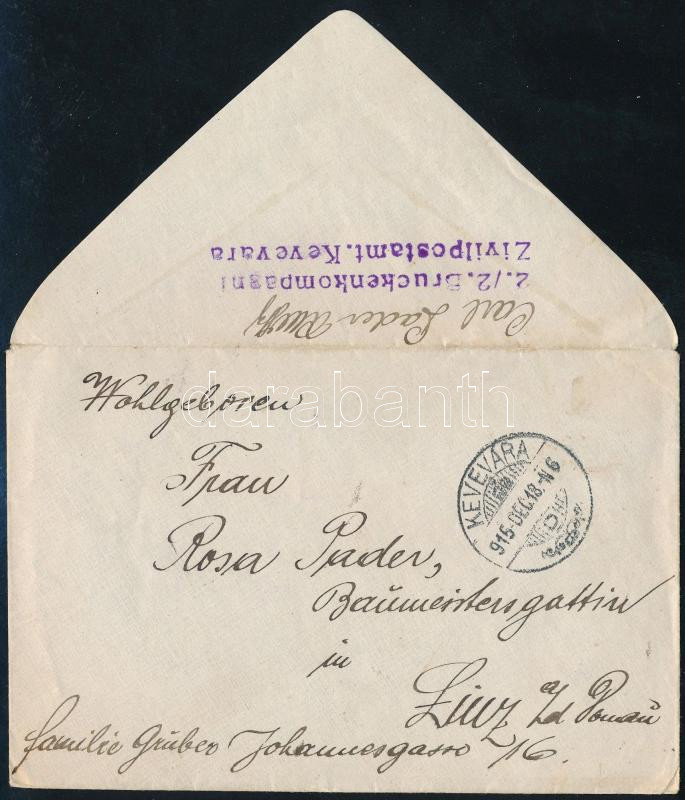 2./2.Bruckenkompagni
Zivilpostamt.Kevevara
Carl Pader
darabanth
Wohlgeboren
Frau
Rosa Pader,
Baumeistersgattin
in
Linz a/d Donau
Familie Gruber Johannesgasse /16.
KEVEVÁRA
915-DEC.18-N6